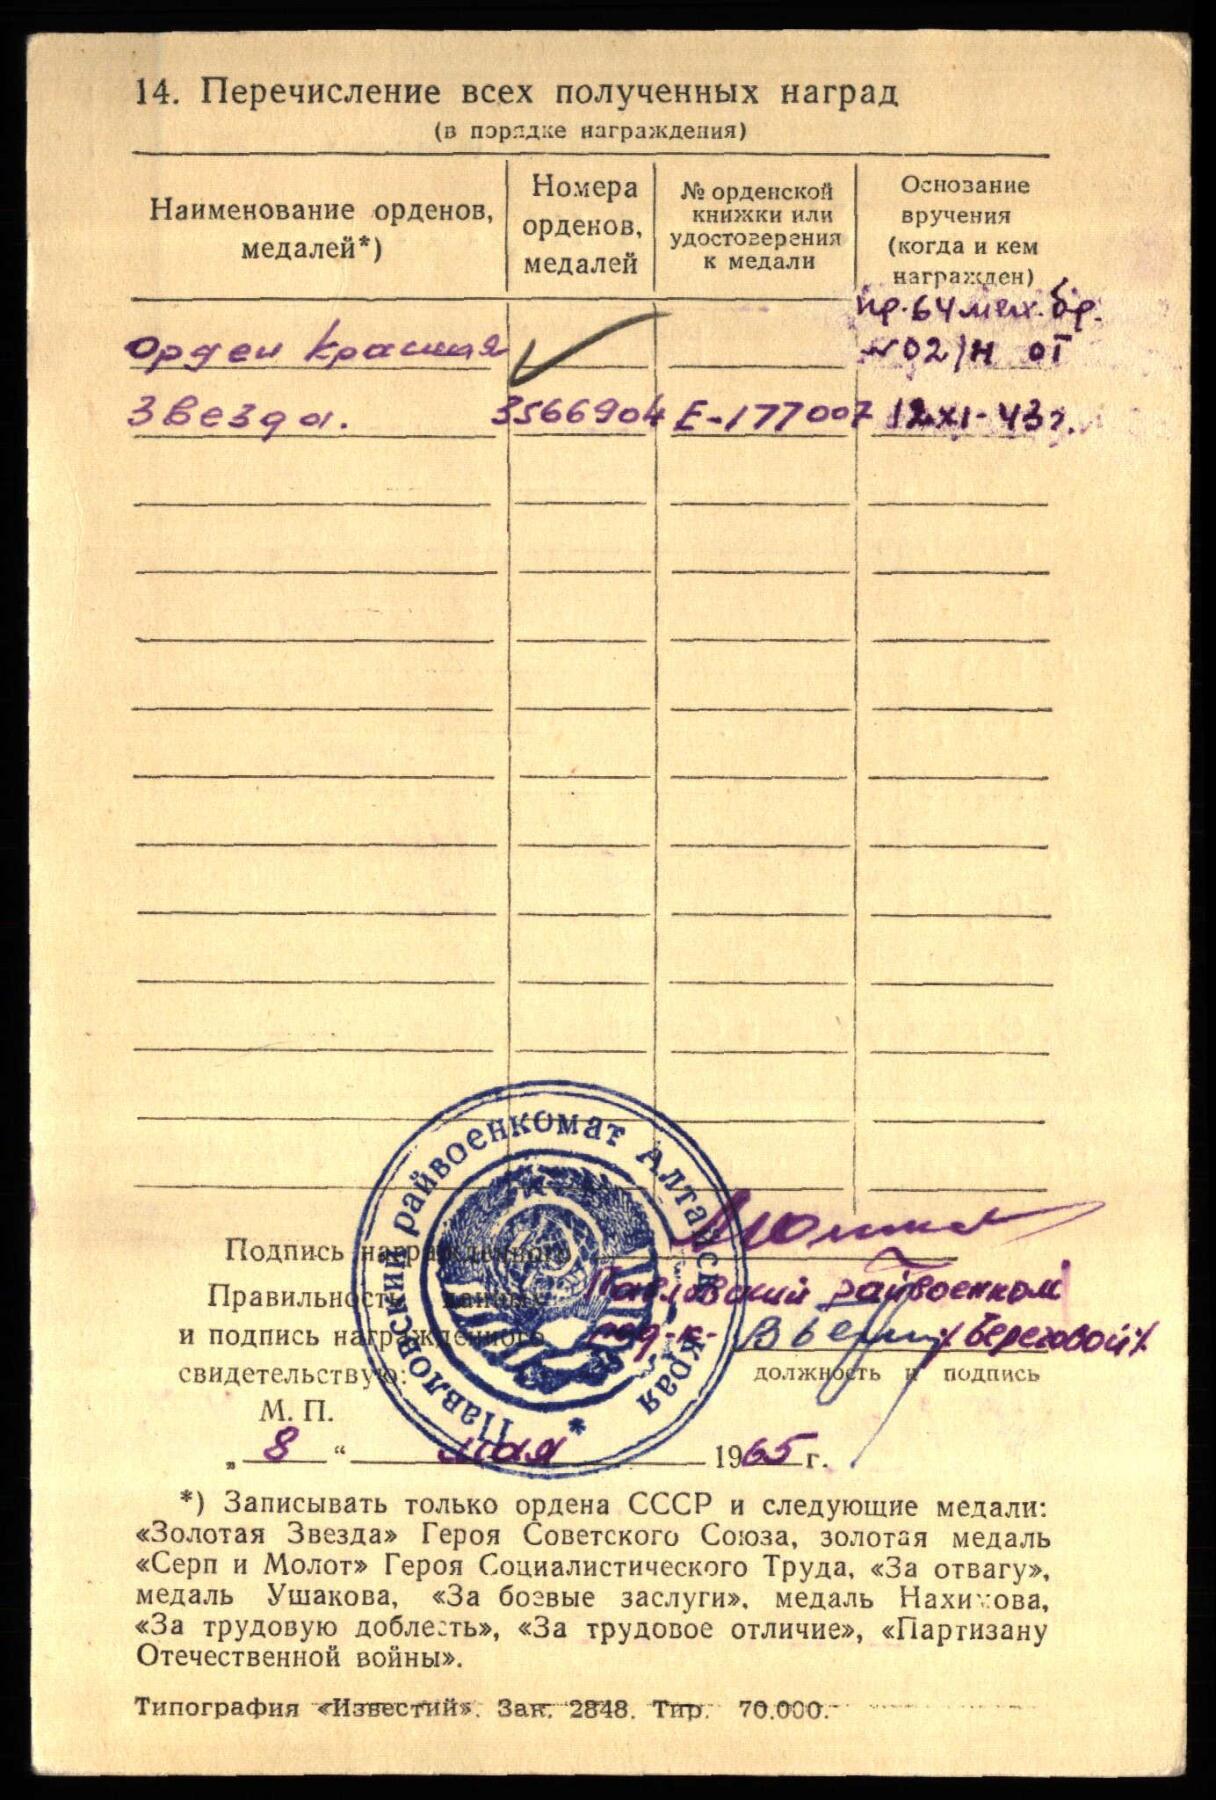 14. Перечисление всех полученных наград
(в порядке награждения)
Наименование орденов, медалей*)
Номера орденов, медалей
№ орденской книжки или удостоверения к медали
Основание вручения (когда и кем награжден)
пр. 64 мех. бр.
Орден Красная
№ 02/н от
Звезда. 3566904 Е-177007 12 XI-43г.
Павловский райвоенкомат Алтайск края *
Подпись награжденного
Правильность данных Павловский райвоенком
и подпись награжденного под-к- /Береговой/
свидетельствую: должность и подпись
М. П.
„ 8 “ мая 1965 г.
*) Записывать только ордена СССР и следующие медали:
«Золотая Звезда» Героя Советского Союза, золотая медаль
«Серп и Молот» Героя Социалистического Труда, «За отвагу»,
медаль Ушакова, «За боевые заслуги», медаль Нахимова,
«За трудовую доблесть», «За трудовое отличие», «Партизану
Отечественной войны».
Типография «Известий». Зак. 2848. Тир. 70.000.